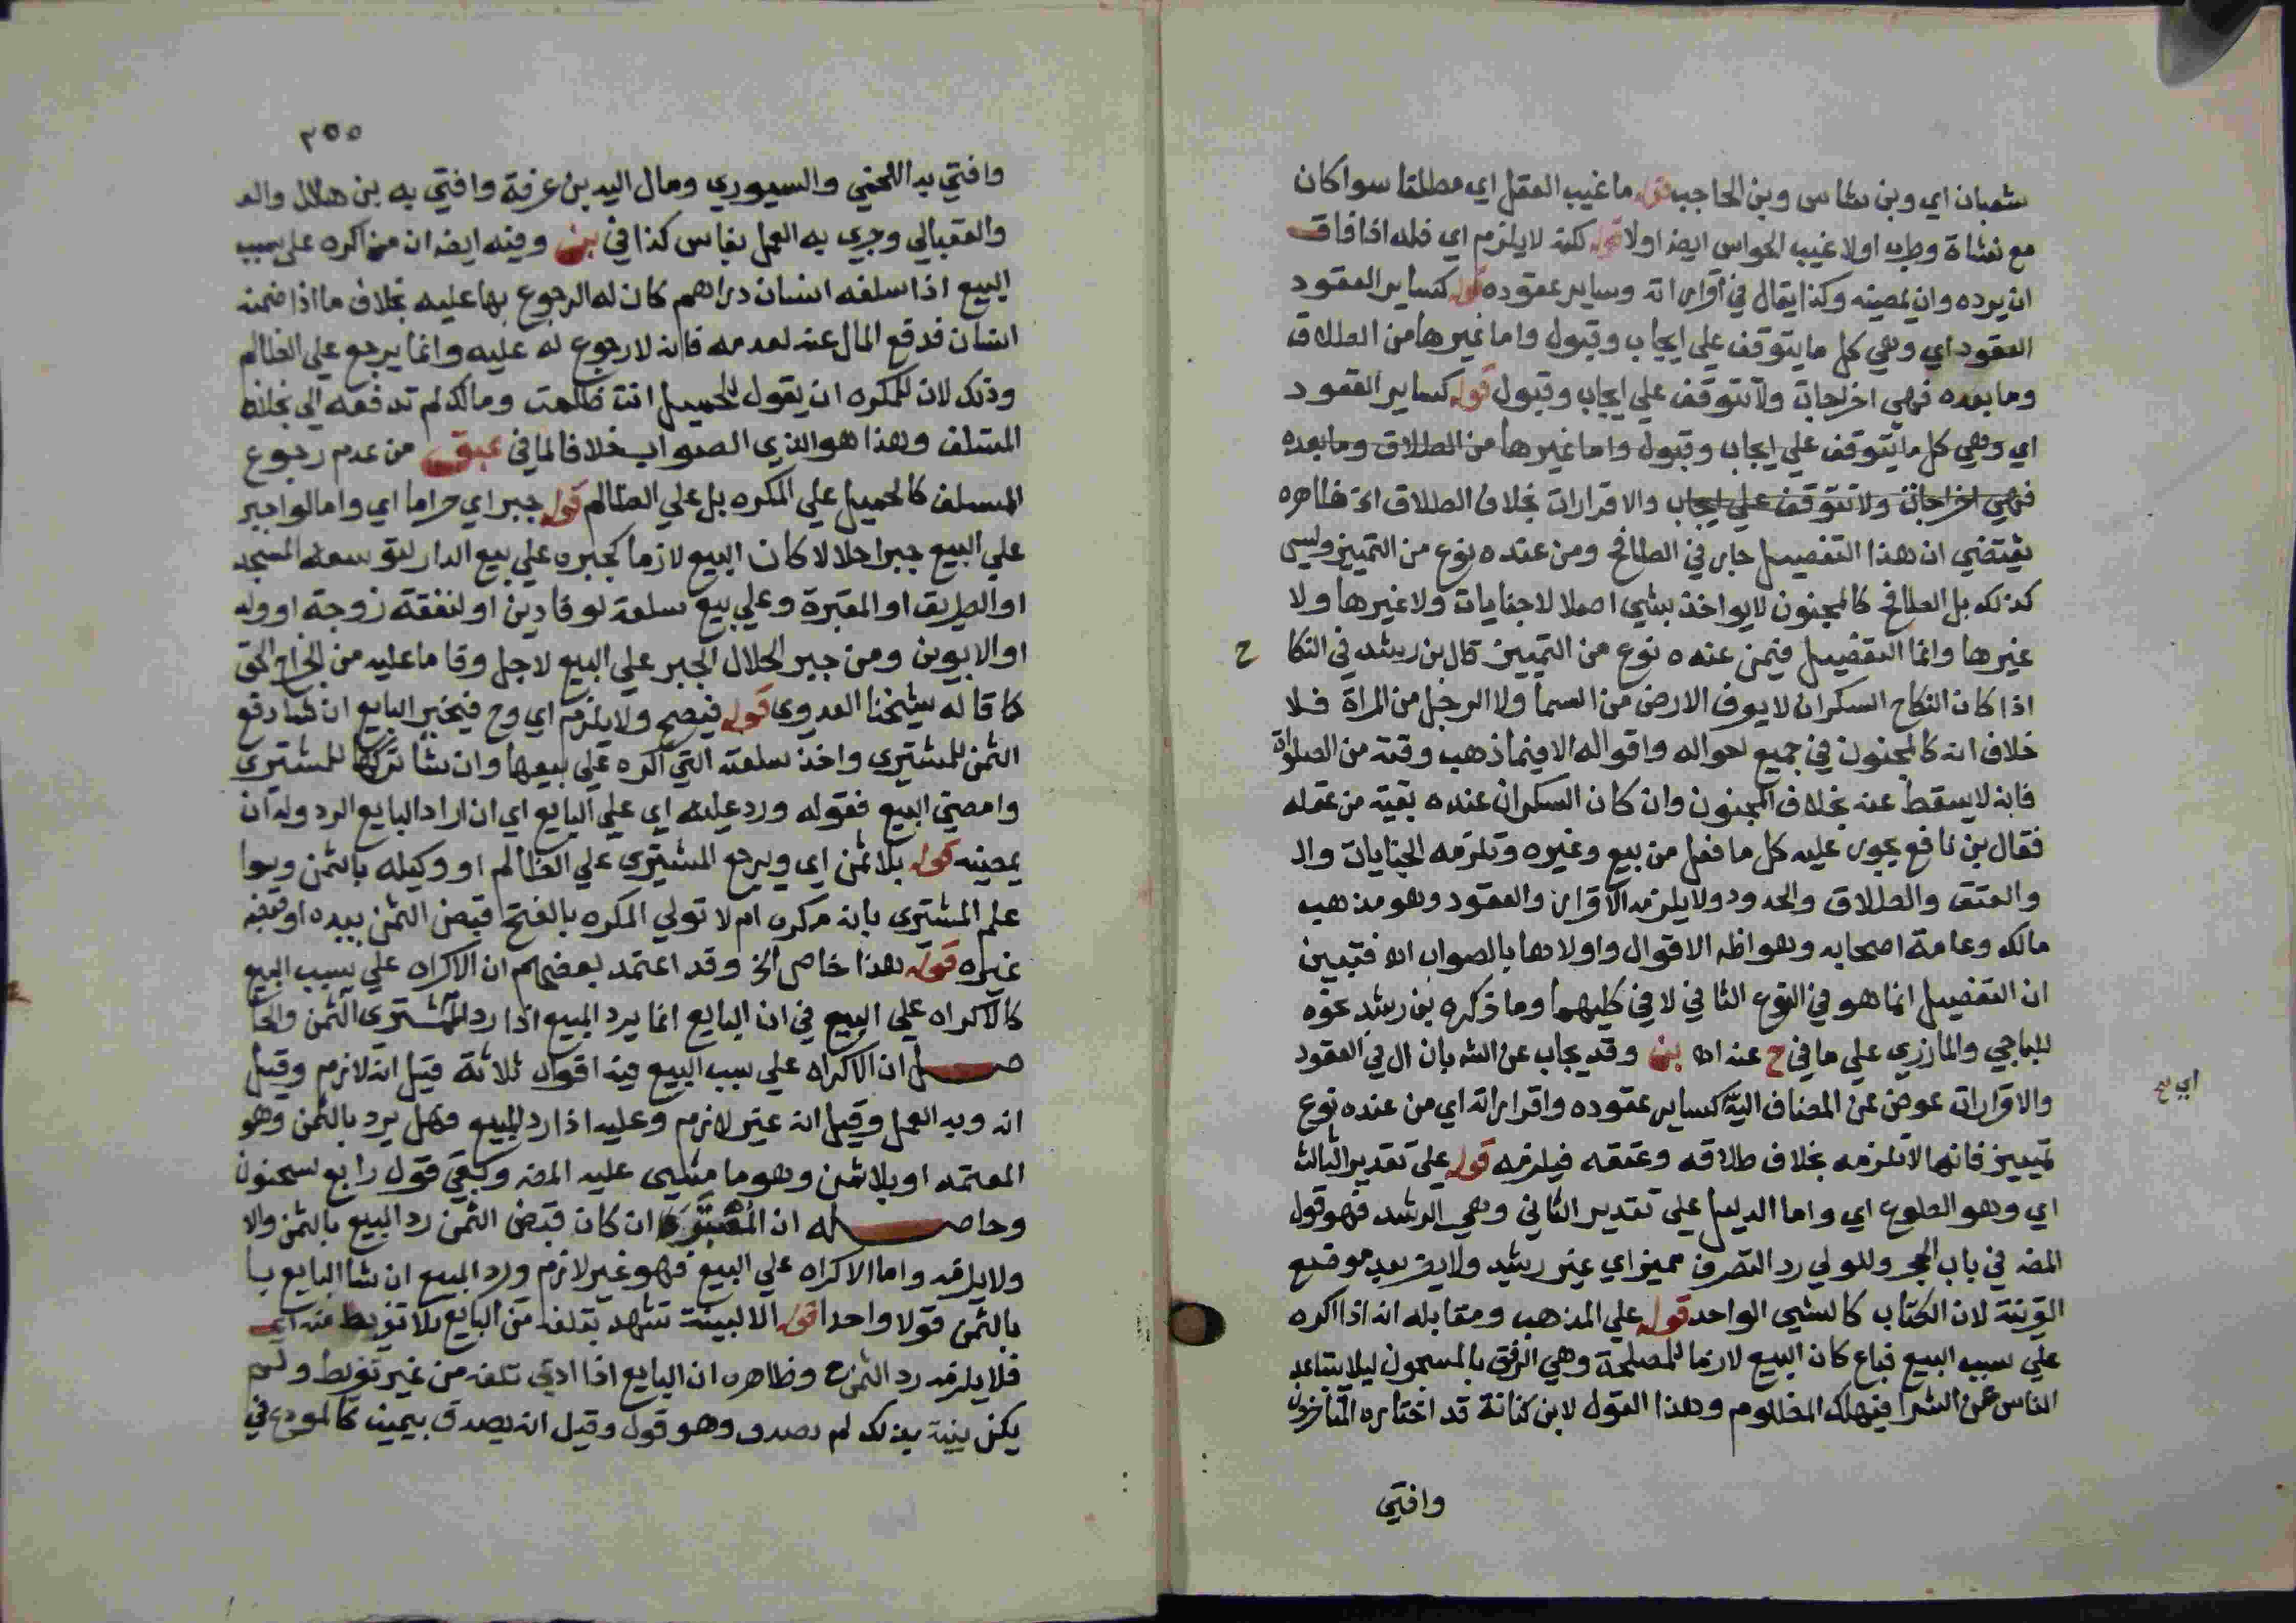 شعبان اي وبن شاس وبن الحاجب قوله ما غيب العقل اي مطلقا سوا كان
مع نشاة وطرب اولا غيب الحواس ايضا اولا قوله لكنه لا يلزم اي فله اذا فاق
ان يرده وان يمضيه وكذا يقال في اقراراته وساير عقوده قوله كساير العقود
العقود اي وهي كل ما يتوقف علي ايجاب وقبول واما غيرها من الطلاق
وما بعده فهي اخراجات ولا تتوقف علي ايجاب وقبول قوله كساير العقود
اي وهي كل ما يتوقف علي ايجاب وقبول واما غيرها من الطلاق وما بعده
فهي اخراجات ولا تتوقف علي ايجاب والاقرارات بخلاف الطلاق الخ ظاهره
يقتضي ان هذا التفصيل جار في الطافح ومن عنده نوع من التمييز وليس
كذلك بل الطافح كالمجنون لا يواخذ بشي اصلا لا جنايات ولا غيرها ولا
غيرها وانما التفصيل فيمن عنده نوع من التمييز قال بن رشد في النكا
ح
اذا كان النكاح السكران لا يعرف الارض من السما ولا الرجل من المراة فلا
خلاف انه كالمجنون في جميع احواله واقواله الا فيما ذهب وقته من الصلوات
فانه لا يسقط عنه بخلاف المجنون وان كان السكران عنده بقية من عقله
فقال بن نافع يجوز عليه كل ما فعل من بيع وغيره وتلزمه الجنايات وال
والعتق والطلاق والحدود ولا يلزمه الاقرار والعقود وهو مذهب
مالك وعامة اصحابه وهو اظهر الاقوال واولاها بالصواب اه فتبين
ان التفصيل انما هو في النوع الثاني لا في كليهما وما ذكره بن رشد نحوه
للباجي والمازري علي ما في ح عنه اه بن وقد يجاب عن الش بان ال في العقود
والاقرارات عوض عن المضاف اليه كساير عقوده واقراراته اي من عنده نوع
تمييز فانها لا تلزمه بخلاف طلاقه وعتقه فيلزمه قوله علي تقدير الثالث
اي وهو الطوع اي واما الدليل علي تقدير الثاني وهي الرشد فهو قول
المص في باب الحجر وللولي رد التصرف مميز اي غير رشيد ولا يضر بعد موضع
القرينة لان الكتاب كالشي الواحد قوله علي المذهب ومقابله انه اذا اكره
علي سبب البيع فباع كان البيع لازما للمصلحة وهي الرفق بالمسجون ليلا يتباعد
الناس عن الشرا فيهلك المظلوم وهذا القول لابن كنانة قد اختاره المتاخرون
وافتي
٢٥٥
وافتي به اللخمي والسيوري ومال اليه بن عرفة وافتي به بن هلال والعد
والقبالي وجري به العمل بفاس كذا في بن وفيه ايضا ان من اكره علي سبب
البيع اذا سلفه انسان دراهم كان له الرجوع بها عليه بخلاف ما اذا ضمنه
انسان فدفع المال عنه لعدمه فانه لا رجوع له عليه وانما يرجع علي الظالم
وذلك لان للمكره ان يقول للحميل انت ظلمت ومالك لم تدفعه الي بخلاف
المتسلف وهذا هو الذي الصواب خلافا لما في عبق من عدم رجوع
المسلف كالحميل علي المكره بل علي الظالم قوله جبر اي حراما اي واما لو اجبر
علي البيع جبرا حلالا كان البيع لازما كجبره علي بيع الدار لتوسعة المسجد
او الطريق او المقبرة وعلي بيع سلعة لوفا دين او لنفقة زوجة او ولد
او الابوين ومن جبر الحلال الجبر علي البيع لاجل وفا ما عليه من الخراج الحق
كما قاله شيخنا العدوي قوله فيصح ولا يلزم اي وح فيخير البايع ان شا دفع
الثمن للمشتري واخذ سلعته التي اكره علي بيعها وان شا تركها للمشتري
وامضي البيع فقوله ورد عليه اي علي البايع اي ان اراد البايع الرد وله ان
يمضيه قوله بلا ثمن اي ويرجع المشتري علي الظالم او وكيله بالثمن وسوا
علم المشتري بانه مكره ام لا تولي المكره بالفتح قبض الثمن بيده او قبضه
غيره قوله هذا خاص الخ وقد اعتمد بعضهم ان الاكراه علي سبب البيع
كالاكراه علي البيع في ان البايع انما يرد المبيع اذا رد المشتري الثمن والحا
صل ان الاكراه علي سبب البيع فيه اقوال ثلاثة قيل انه لازم وقيل
انه وبه العمل وقيل انه غير لازم وعليه اذا رد المبيع فهل يرد بالثمن وهو
المعتمد او بلا ثمن وهو ما مشي عليه المص وبقي قول رابع لسحنون
وحاصله ان ان كان قبض الثمن رد البيع بالثمن والا
ولا يلزمه واما الاكراه علي البيع فهو غير لازم ورد المبيع ان شا البايع با
بالثمن قولا واحدا قوله الا لبينة تشهد بتلفه من البايع بلا تفريط منه اي
فلا يلزمه رد الثمن ح وظاهره ان البايع اذا ادعي تلفه من غير تفريط ولم
يكن بينة بذلك لم يصدق وهو قول وقيل انه يصدق بيمين كالمودع في